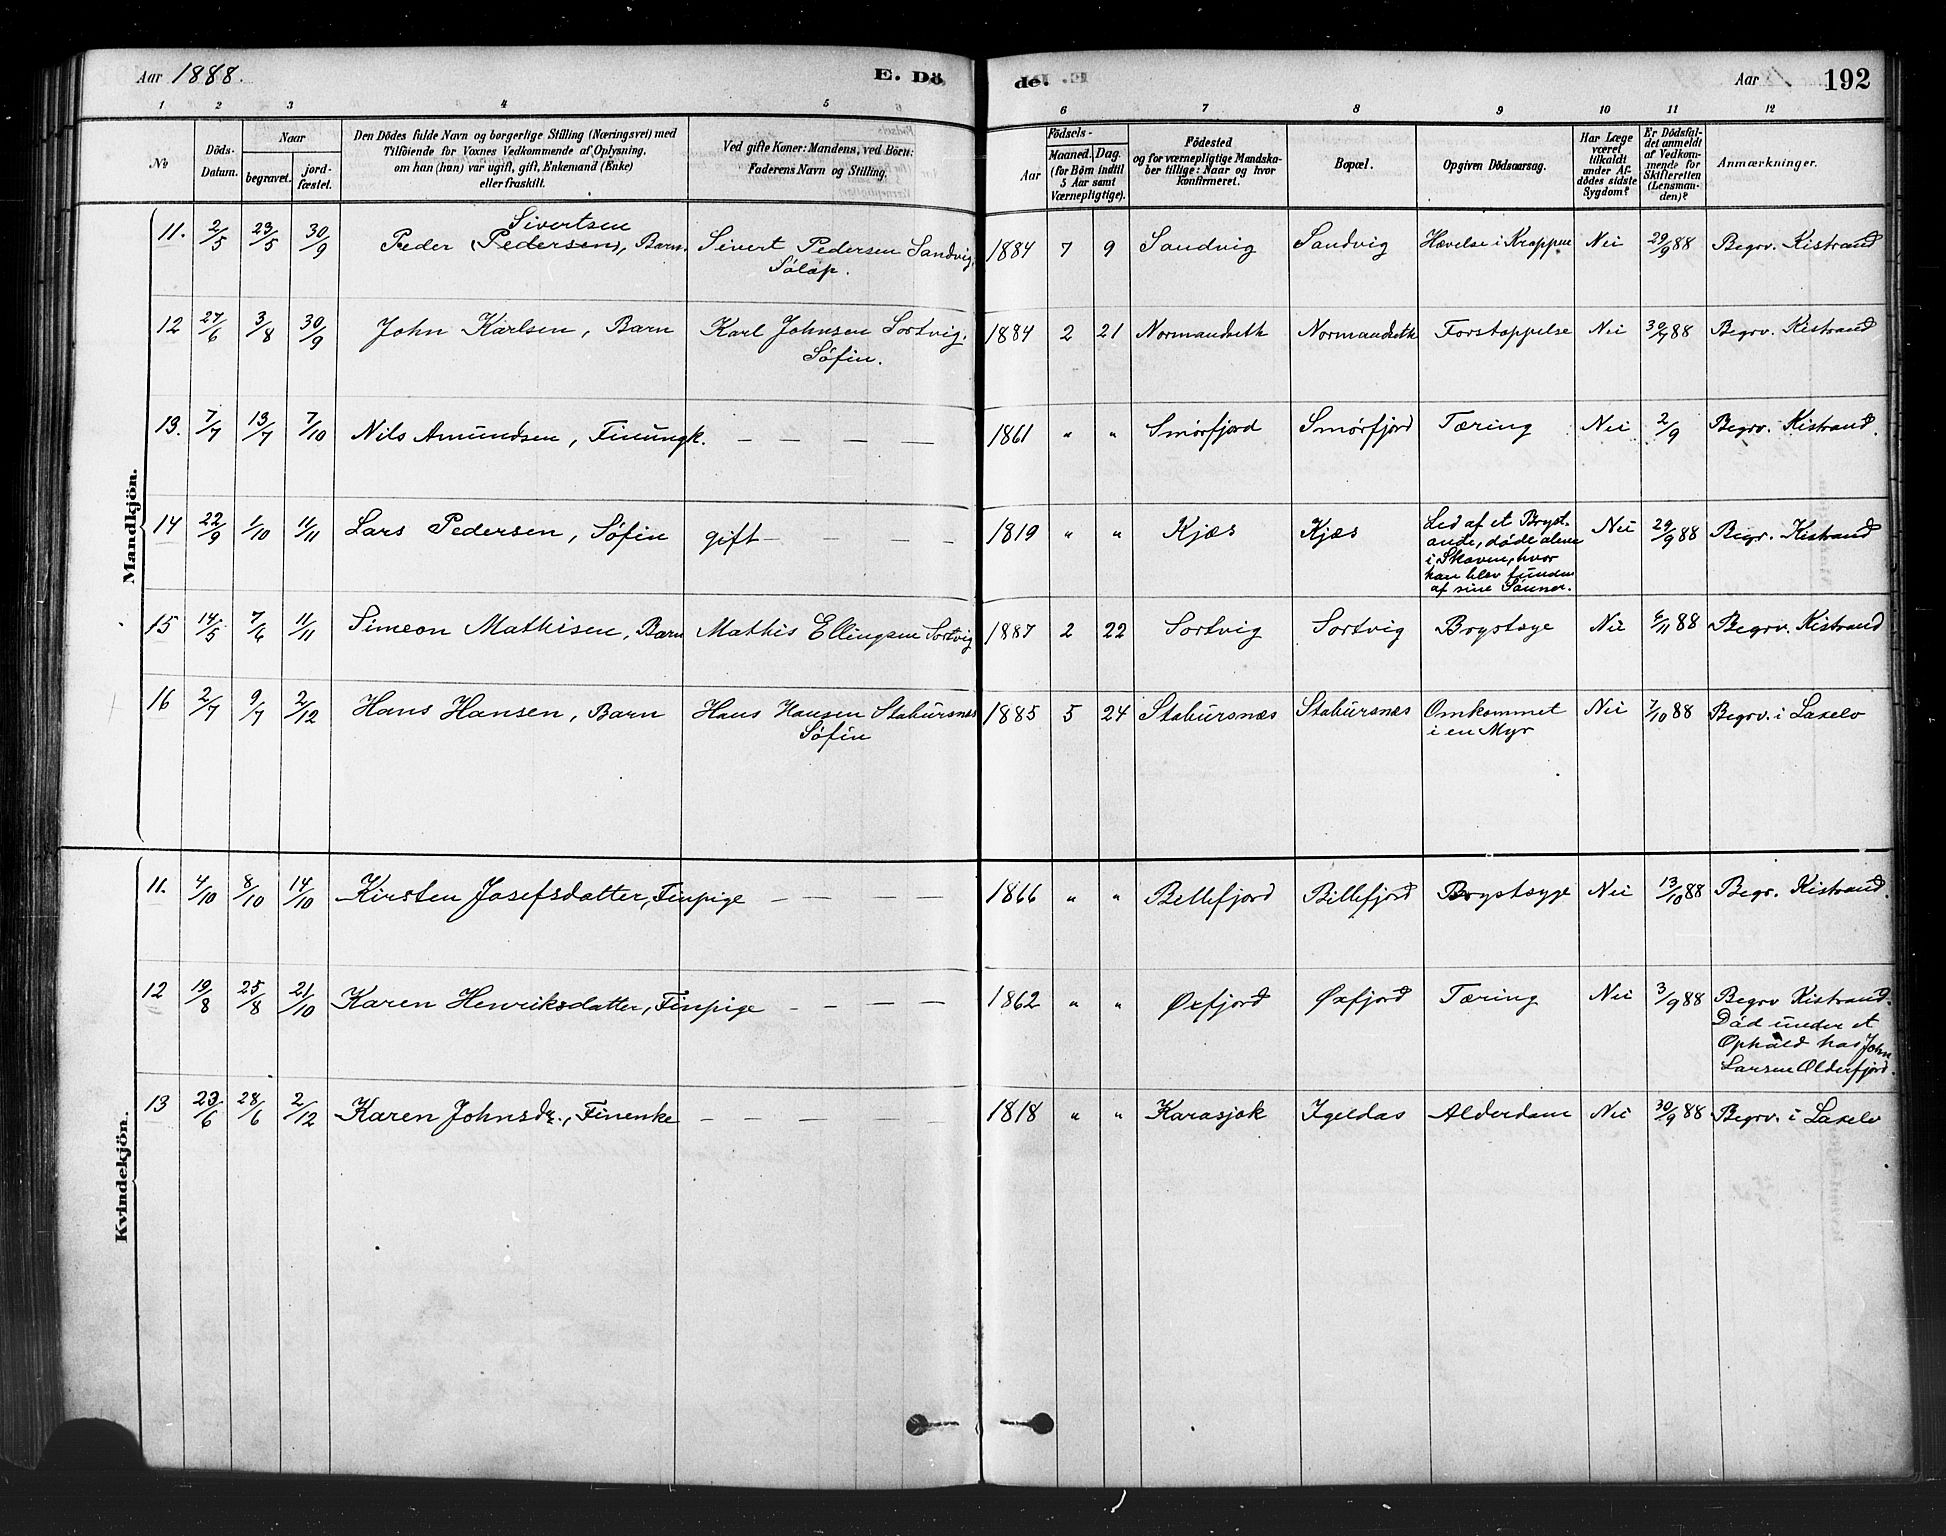 Aar 1888.
E. Dö
de.
Aar
192
1 2 3 4 5 6 7 8 9 10 11 12
No
Döds-
Datum.
Naar
begravet.
jord-
fæstet.
Den Dödes fulde Navn og borgerlige Stilling (Næringsvei) med
Tilföiende for Voxnes Vedkommende af Oplysning,
om han (hun) var ugift, gift, Enkemand (Enke)
eller fraskilt.
Ved gifte Koner: Mandens, ved Börn:
Faderens Navn og Stilling.
Födsels-
Aar
Maaned. Dag.
(for Börn indtil
5 Aar samt
Værnepligtige).
Födested
og for værnepligtige Mandska-
ber tillige: Naar og hvor
konfirmeret.
Bopæl.
Opgiven Dödsaarsag.
Har Læge
været
tilkaldt
under Af-
dödes sidste
Sygdom?
Er Dödsfal-
det anmeldt
af Vedkom-
mende for
Skifteretten
(Lensman-
den)?
Anmærkninger.
Mandkjön.
11. 2/5 23/5 30/9 Peder (Pedersen), Sivertsen Barn. Sivert Pedersen Sandvig, Sölap. 1884 7 9 Sandvig Sandvig Hævelse i Kroppen Nei 29/9 88 Begrv. Kistrand
12 27/6 3/8 30/9 John Karlsen, Barn Karl Johnsen Sortvig, Söfin. 1884 2 21 Normandseth Normandseth Forstoppelse Nei 30/9 88 Begrv. Kistrand
13. 7/7 13/7 7/10 Nils Amundsen, Finungk. — — — — 1861 " " Smörfjord Smörfjord Tæring Nei 2/9 Begrv. Kistrand.
14 22/9 1/10 11/11 Lars Pedersen, Söfin gift — — — — 1819 " " Kjæs Kjæs Led af et Bryst-
onde, döde alene
i Skoven, hvor
han blev funden
af sine Sönner. Nei 29/9 88 Begr. Kistrand
15 14/5 7/6 11/11 Simeon Mathisen, Barn Mathis Ellingsen Sortvig 1887 2 22 Sortvig Sortvig Brystsyge Nei 6/11 88 Begrv. Kistrand
16 2/7 9/7 2/12 Hans Hansen, Barn Hans Hansen Stabursnæs Söfin 1885 5 24 Stabursnæs Stabursnæs Omkommet
i en Myr Nei 7/10 88 Begrv. i Laxelv
Kvindekjön.
11. 4/10 8/10 14/10 Kirsten Josefsdatter, Finpige — — — — 1866 " " Billefjord Billefjord Brystsyge Nei 13/10 88 Begr. Kistrand.
12 19/8 25/8 21/10 Karen Henriksdatter, Finpige — — — 1862 " " Øxfjord Øxfjord Tæring Nei 3/9 88 Begrv Kistrand.
Död under et
Ophold hos John
Larsen Olderfjord.
13 23/6 28/6 2/12 Karen Johnsdr., Finenke — — — — 1818 " " Karasjok Igeldas Alderdom Nei 30/9 88 Begrv. i Laxelv